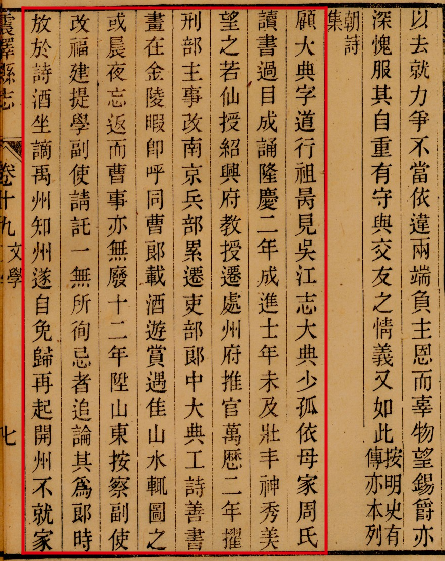 以去就力爭不當依違兩端負主恩而辜物望錫爵亦
深愧服其自重有守與交友之情義又如此按明史有傳亦本列
朝詩集
顧大典字道行祖昺見吳江志大典少孤依母家周氏
讀書過目成誦隆慶二年成進士年未及壯丰神秀美
望之若仙授紹興府教授遷處州府推官萬曆二年擢
刑部主事改南京兵部累遷吏部郎中大典工詩善書
畫在金陵暇卽呼同曹郎載酒遊賞遇佳山水輒圖之
或晨夜忘返而曹事亦無廢十二年陞山東按察副使
改福建提學副使請託一無所徇忌者追論其爲郎時
放於詩酒坐謫禹州知州遂自免歸再起開州不就家
震澤縣志 卷十九 文學 七